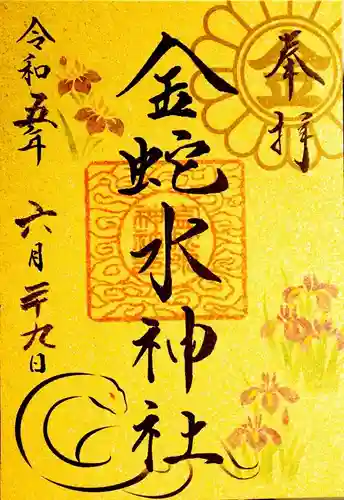 奉拝
金蛇水神社
令和五年
六月二十九日